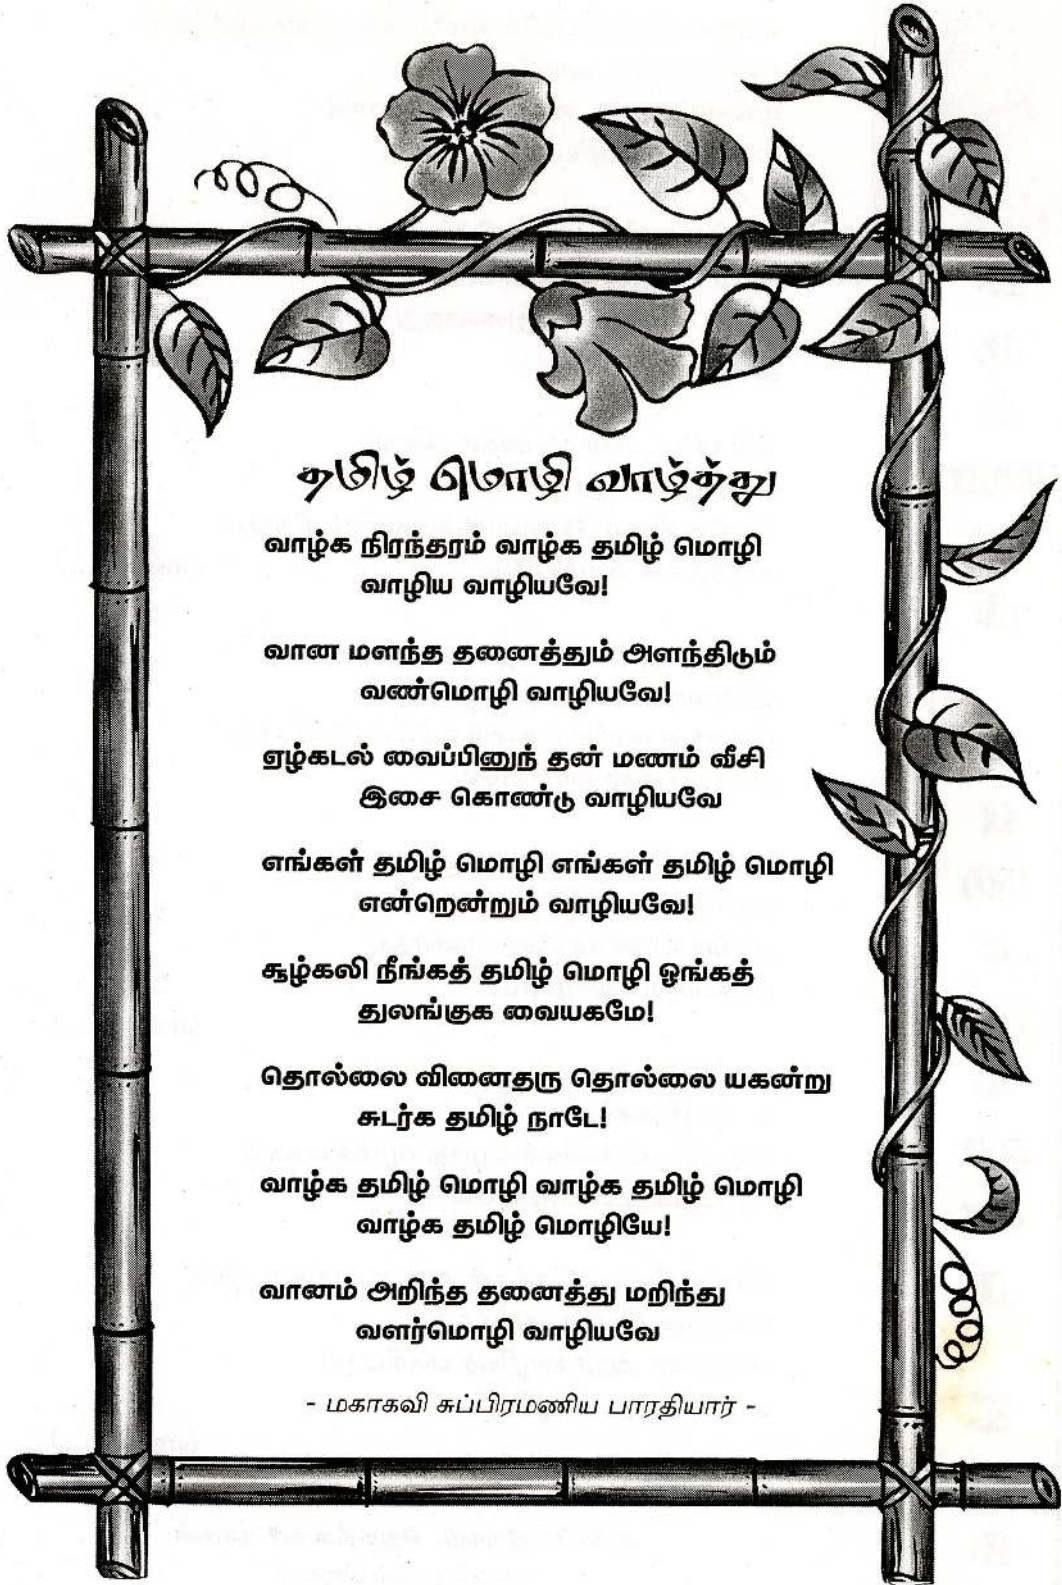 தமிழ் மொழி வாழ்த்து
வாழ்க நிரந்தரம் வாழ்க தமிழ் மொழி
வாழிய வாழியவே!
வான மளந்த தனைத்தும் அளந்திடும்
வண்மொழி வாழியவே!
ஏழ்கடல் வைப்பினுந் தன் மணம் வீசி
இசை கொண்டு வாழியவே
எங்கள் தமிழ் மொழி எங்கள் தமிழ் மொழி
என்றென்றும் வாழியவே!
சூழ்கலி நீங்கத் தமிழ் மொழி ஓங்கத்
துலங்குக வையகமே!
தொல்லை வினைதரு தொல்லை யகன்று
சுடர்க தமிழ் நாடே!
வாழ்க தமிழ் மொழி வாழ்க தமிழ் மொழி
வாழ்க தமிழ் மொழியே!
வானம் அறிந்த தனைத்து மறிந்து
வளர்மொழி வாழியவே
- மகாகவி சுப்பிரமணிய பாரதியார் -